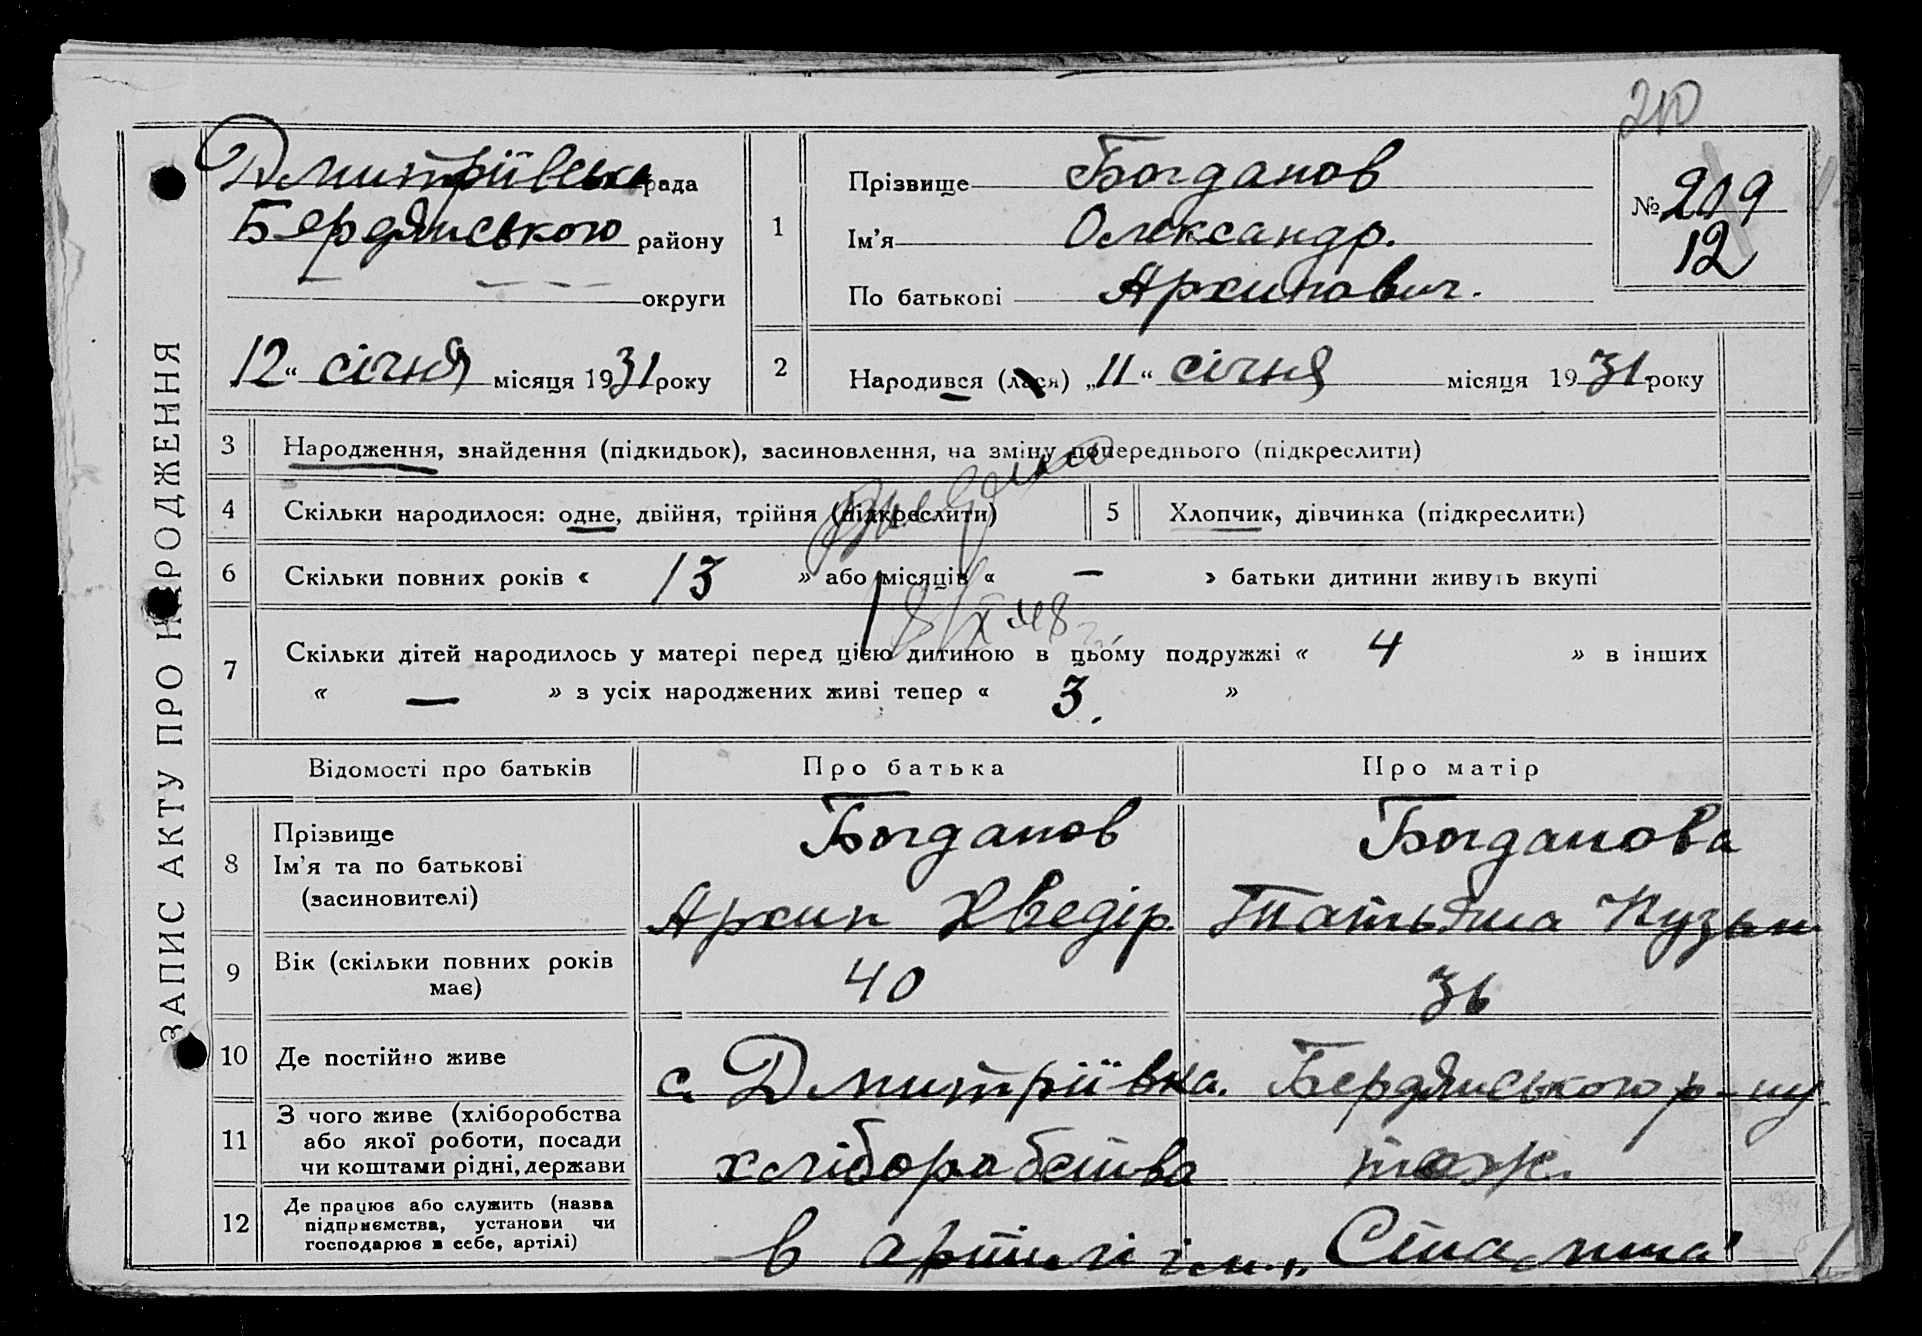 210
ЗАПИС АКТУ ПРО НАРОДЖЕННЯ
Дмитріївська рада
Бердянського району
округи
12 “ січня місяця 1931 року
1
Прізвище Богданов
Ім'я Олександр.
По батькові Архипович.
№ 219
12
2
Народився (лася) „11“ січня місяця 1931 року
3 Народження, знайдення (підкидьок), засиновлення, на зміну попереднього (підкреслити)
4 Скільки народилося: одне, двійня, трійня (підкреслити) 5 Хлопчик, дівчинка (підкреслити)
6 Скільки повних років « 13 » або місяців « — » батьки дитини живуть вкупі
18/X 48
7 Скільки дітей народилось у матері перед цією дитиною в цьому подружжі « 4 » в інших
« — » з усіх народжених живі тепер « 3. »
Відомості про батьків Про батька Про матір
8 Прізвище Богданов Богданова
Ім'я та по батькові
(засиновителі) Архип Хведір. Татьяна Кузьм
9 Вік (скільки повних років має) 40 36
10 Де постійно живе с. Дмитріївка. Бердянського р-ну
11 З чого живе (хліборобства
або якої роботи, посади
чи коштами рідні, держави хліборабства тож.
12 Де працює або служить (назва
підприємства, установи чи
господарює в себе, артілі) в артилі ім. „Сталина"